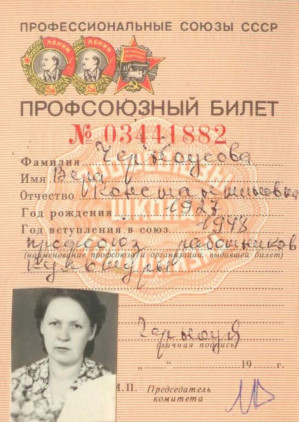 ПРОФЕССИОНАЛЬНЫЕ СОЮЗЫ СССР
ЛЕНИН ЛЕНИН
ПРОФСОЮЗНЫЙ БИЛЕТ
№ 03441882
Фамилия Черноусова
Имя Вера
Отчество Константиновна
Год рождения 1927
Год вступления в союз 1943
профсоюз работников
(наименование профсоюза и организации, выдавшей билет)
культуры
личная подпись
" " 19 г.
М.П. Председатель
комитета